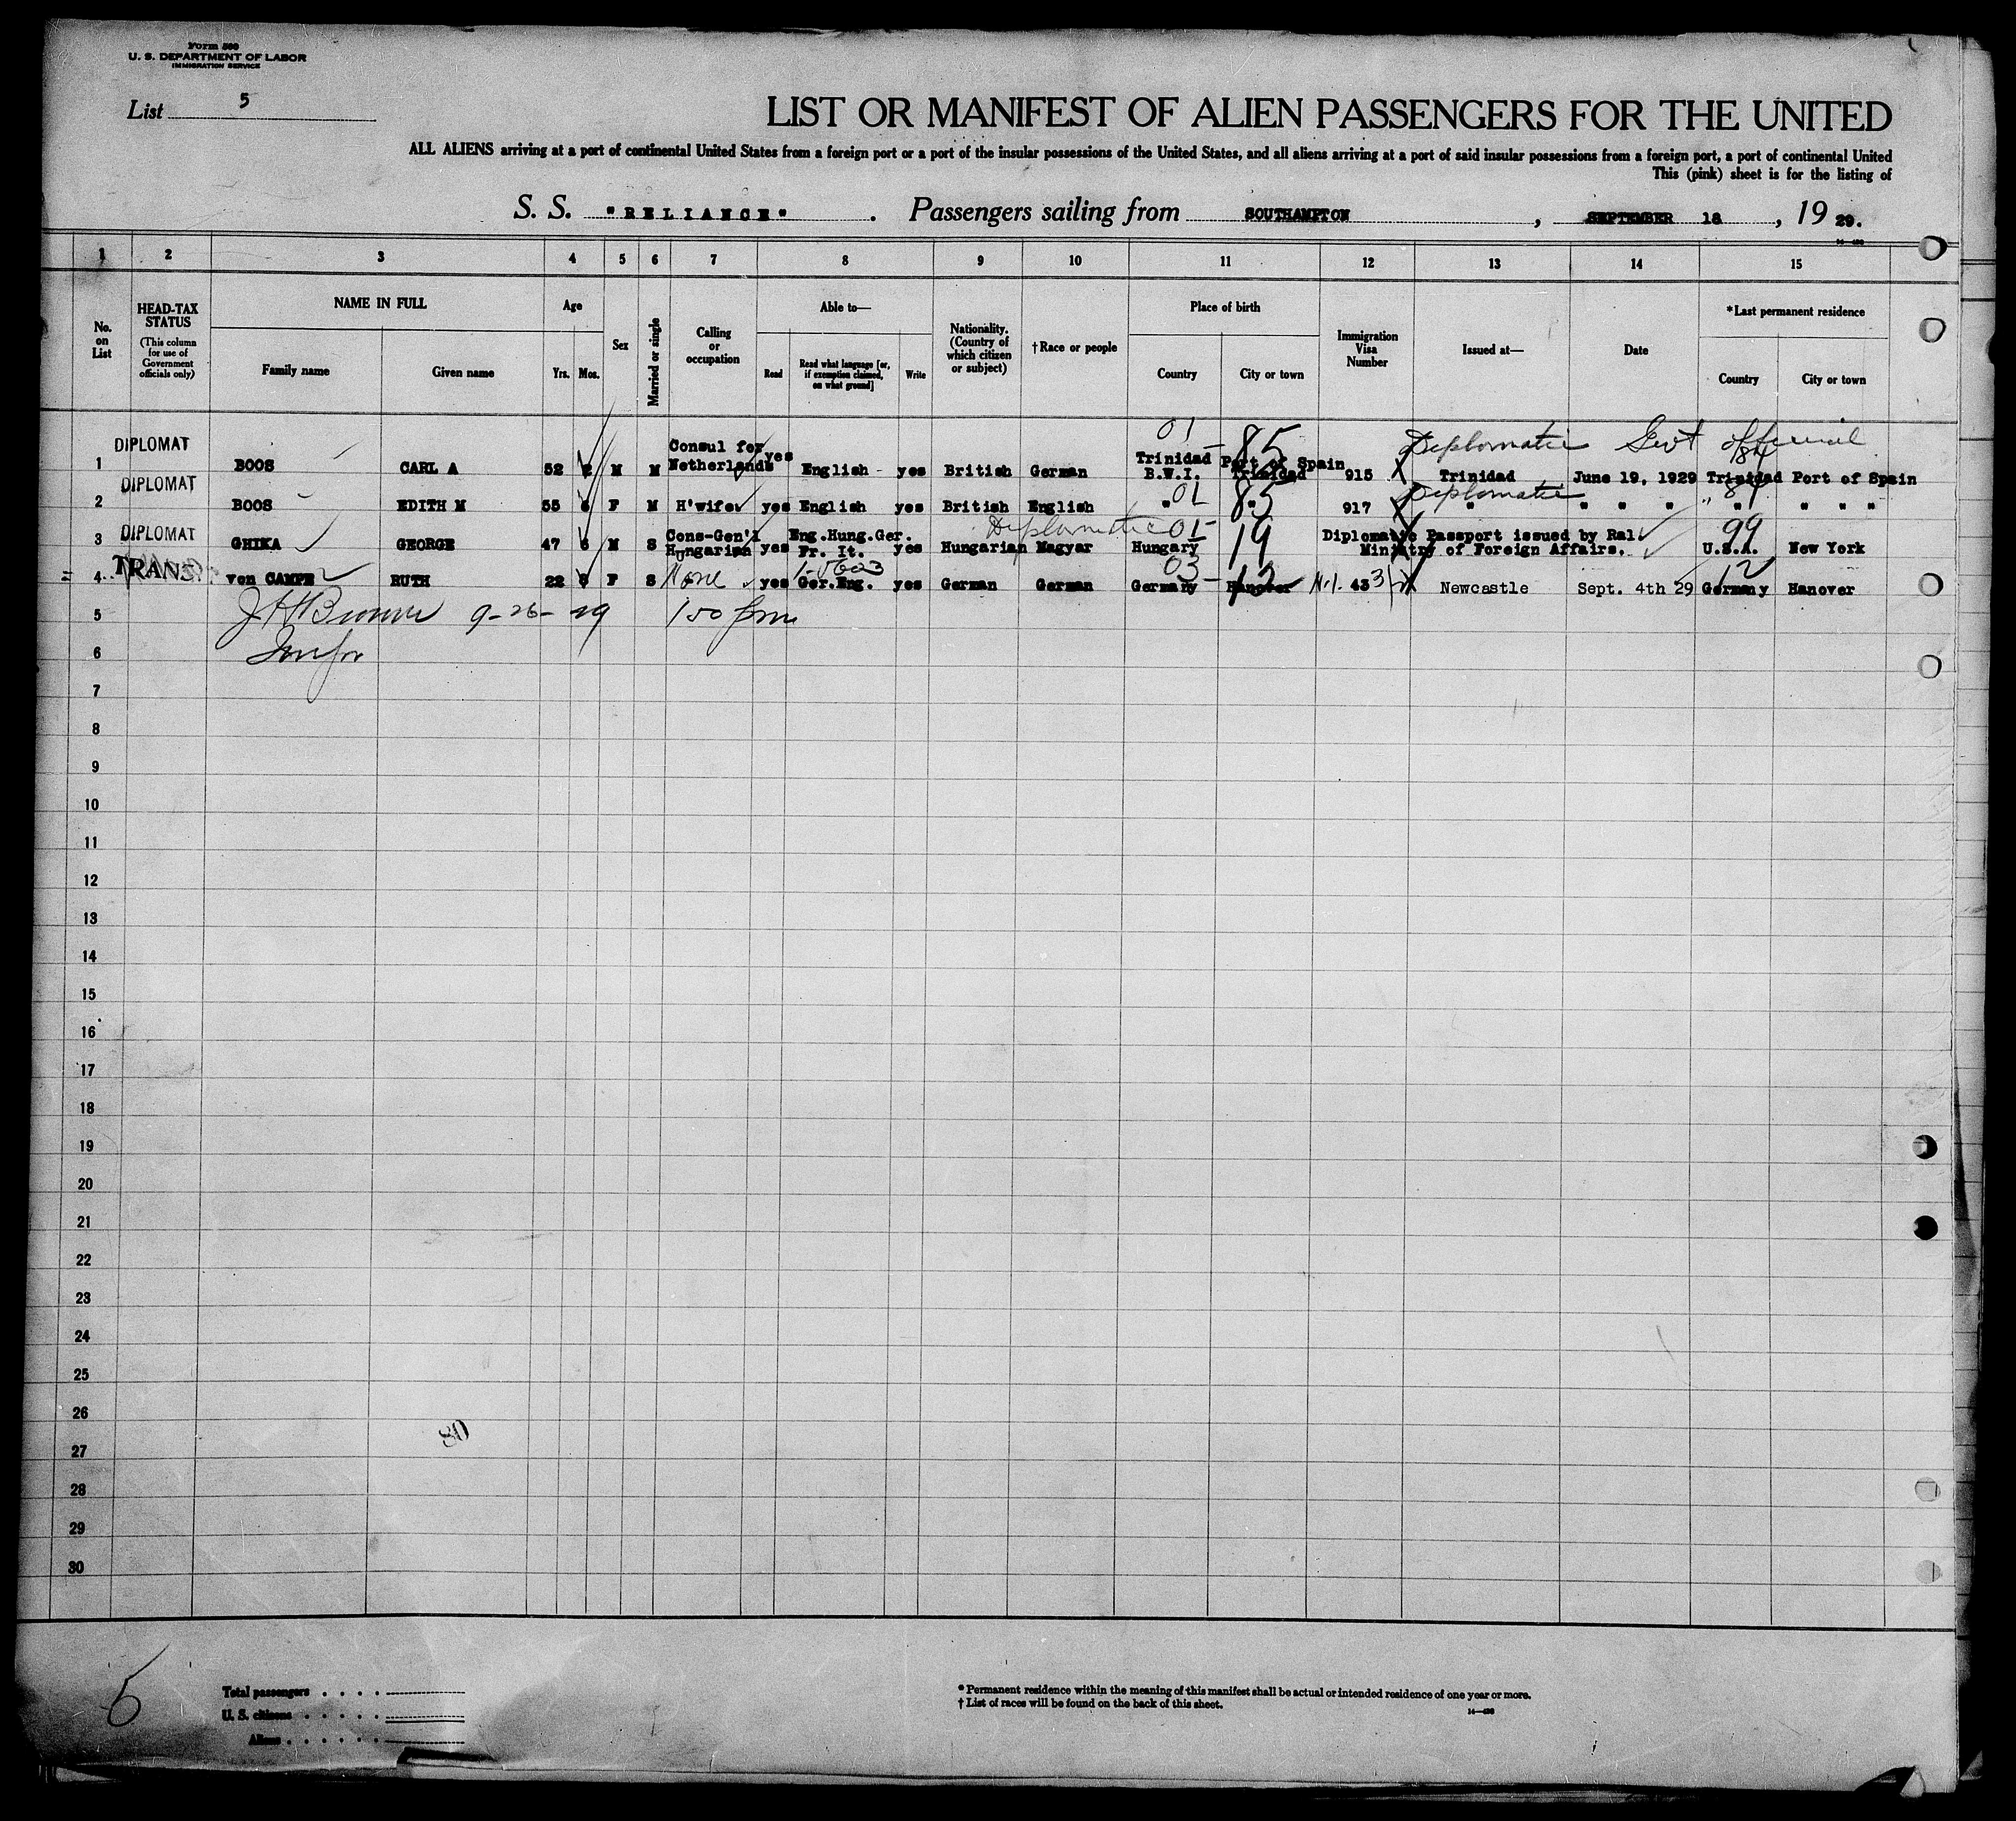 Form 500
U. S. DEPARTMENT OF LABOR
IMMIGRATION SERVICE
List 5
LIST OR MANIFEST OF ALIEN PASSENGERS FOR THE UNITED
ALL ALIENS arriving at a port of continental United States from a foreign port or a port of the insular possessions of the United States, and all aliens arriving at a port of said insular possessions from a foreign port, a port of continental United
This (pink) sheet is for the listing of
S. S. "RELIANCE". Passengers sailing from SOUTHAMPTON, SEPTEMBER 18, 19 29.
1 2 3 4 5 6 7 8 9 10 11 12 13 14 15
No. on List
HEAD-TAX STATUS (This column for use of Government officials only)
NAME IN FULL
Family name Given name
Age
Yrs. Mos.
Sex
Married or single
Calling or occupation
Able to—
Read Read what language [or, if exemption claimed, on what ground] Write
Nationality. (Country of which citizen or subject)
†Race or people
Place of birth
Country City or town
Immigration Visa Number
Issued at—
Date
*Last permanent residence
Country City or town
01 85 Diplomatic Govt official
DIPLOMAT 1 BOOS CARL A 52 2 M M Consul for Netherlands yes English yes British German Trinidad B.W.I. Port of Spain Trinidad 915 Trinidad June 19, 1929 Trinidad Port of Spain
01 85 Diplomatic
DIPLOMAT 2 BOOS EDITH M 55 M H'wife yes English yes British English " " 917 " " " " " " " " "
Diplomatic 01 19 99
DIPLOMAT 3 GHIKA GEORGE 47 M S Cons-Gen'l Hungarian yes Eng.Hung.Ger. Fr. It. yes Hungarian Magyar Hungary Diplomatic Passport issued by Ral Ministry of Foreign Affairs. U.S.A. New York
03 12 12
TRANS. 4 von CAMPE RUTH 22 F S None yes Ger.Eng. yes German German Germany Hanover 433 Newcastle Sept. 4th 29 Germany Hanover
5 9-26-29
6
7
8
9
10
11
12
13
14
15
16
17
18
19
20
21
22
23
24
25
26
27
28
29
30
5
Total passengers
U. S. citizens
Aliens
* Permanent residence within the meaning of this manifest shall be actual or intended residence of one year or more.
† List of races will be found on the back of this sheet.